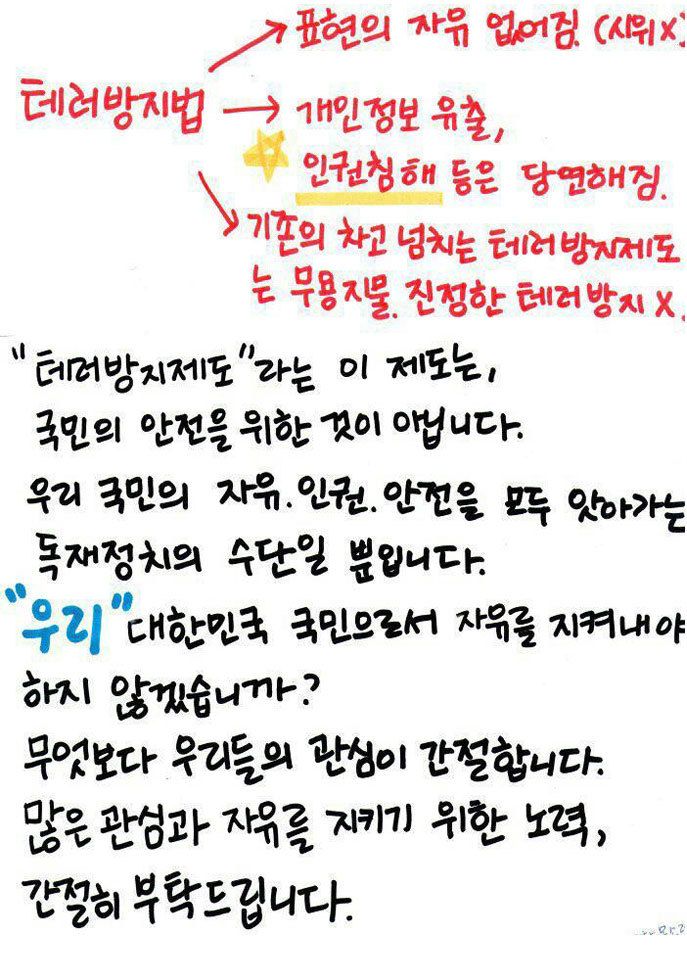 표현의 자유 없어짐. (시위X)
테러방지법 → 개인정보 유출,
인권침해 등은 당연해짐.
기존의 차고 넘치는 테러방지제도
는 무용지물. 진정한 테러방지 X.
"테러방지제도"라는 이 제도는,
국민의 안전을 위한 것이 아닙니다.
우리 국민의 자유.인권.안전을 모두 앗아가는
독재정치의 수단일 뿐입니다.
"우리" 대한민국 국민으로서 자유를 지켜내야
하지 않겠습니까?
무엇보다 우리들의 관심이 간절합니다.
많은 관심과 자유를 지키기 위한 노력,
간절히 부탁드립니다.